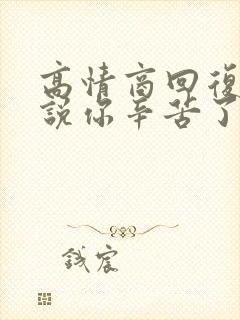 高情商回復
說你辛苦了
鋮宸